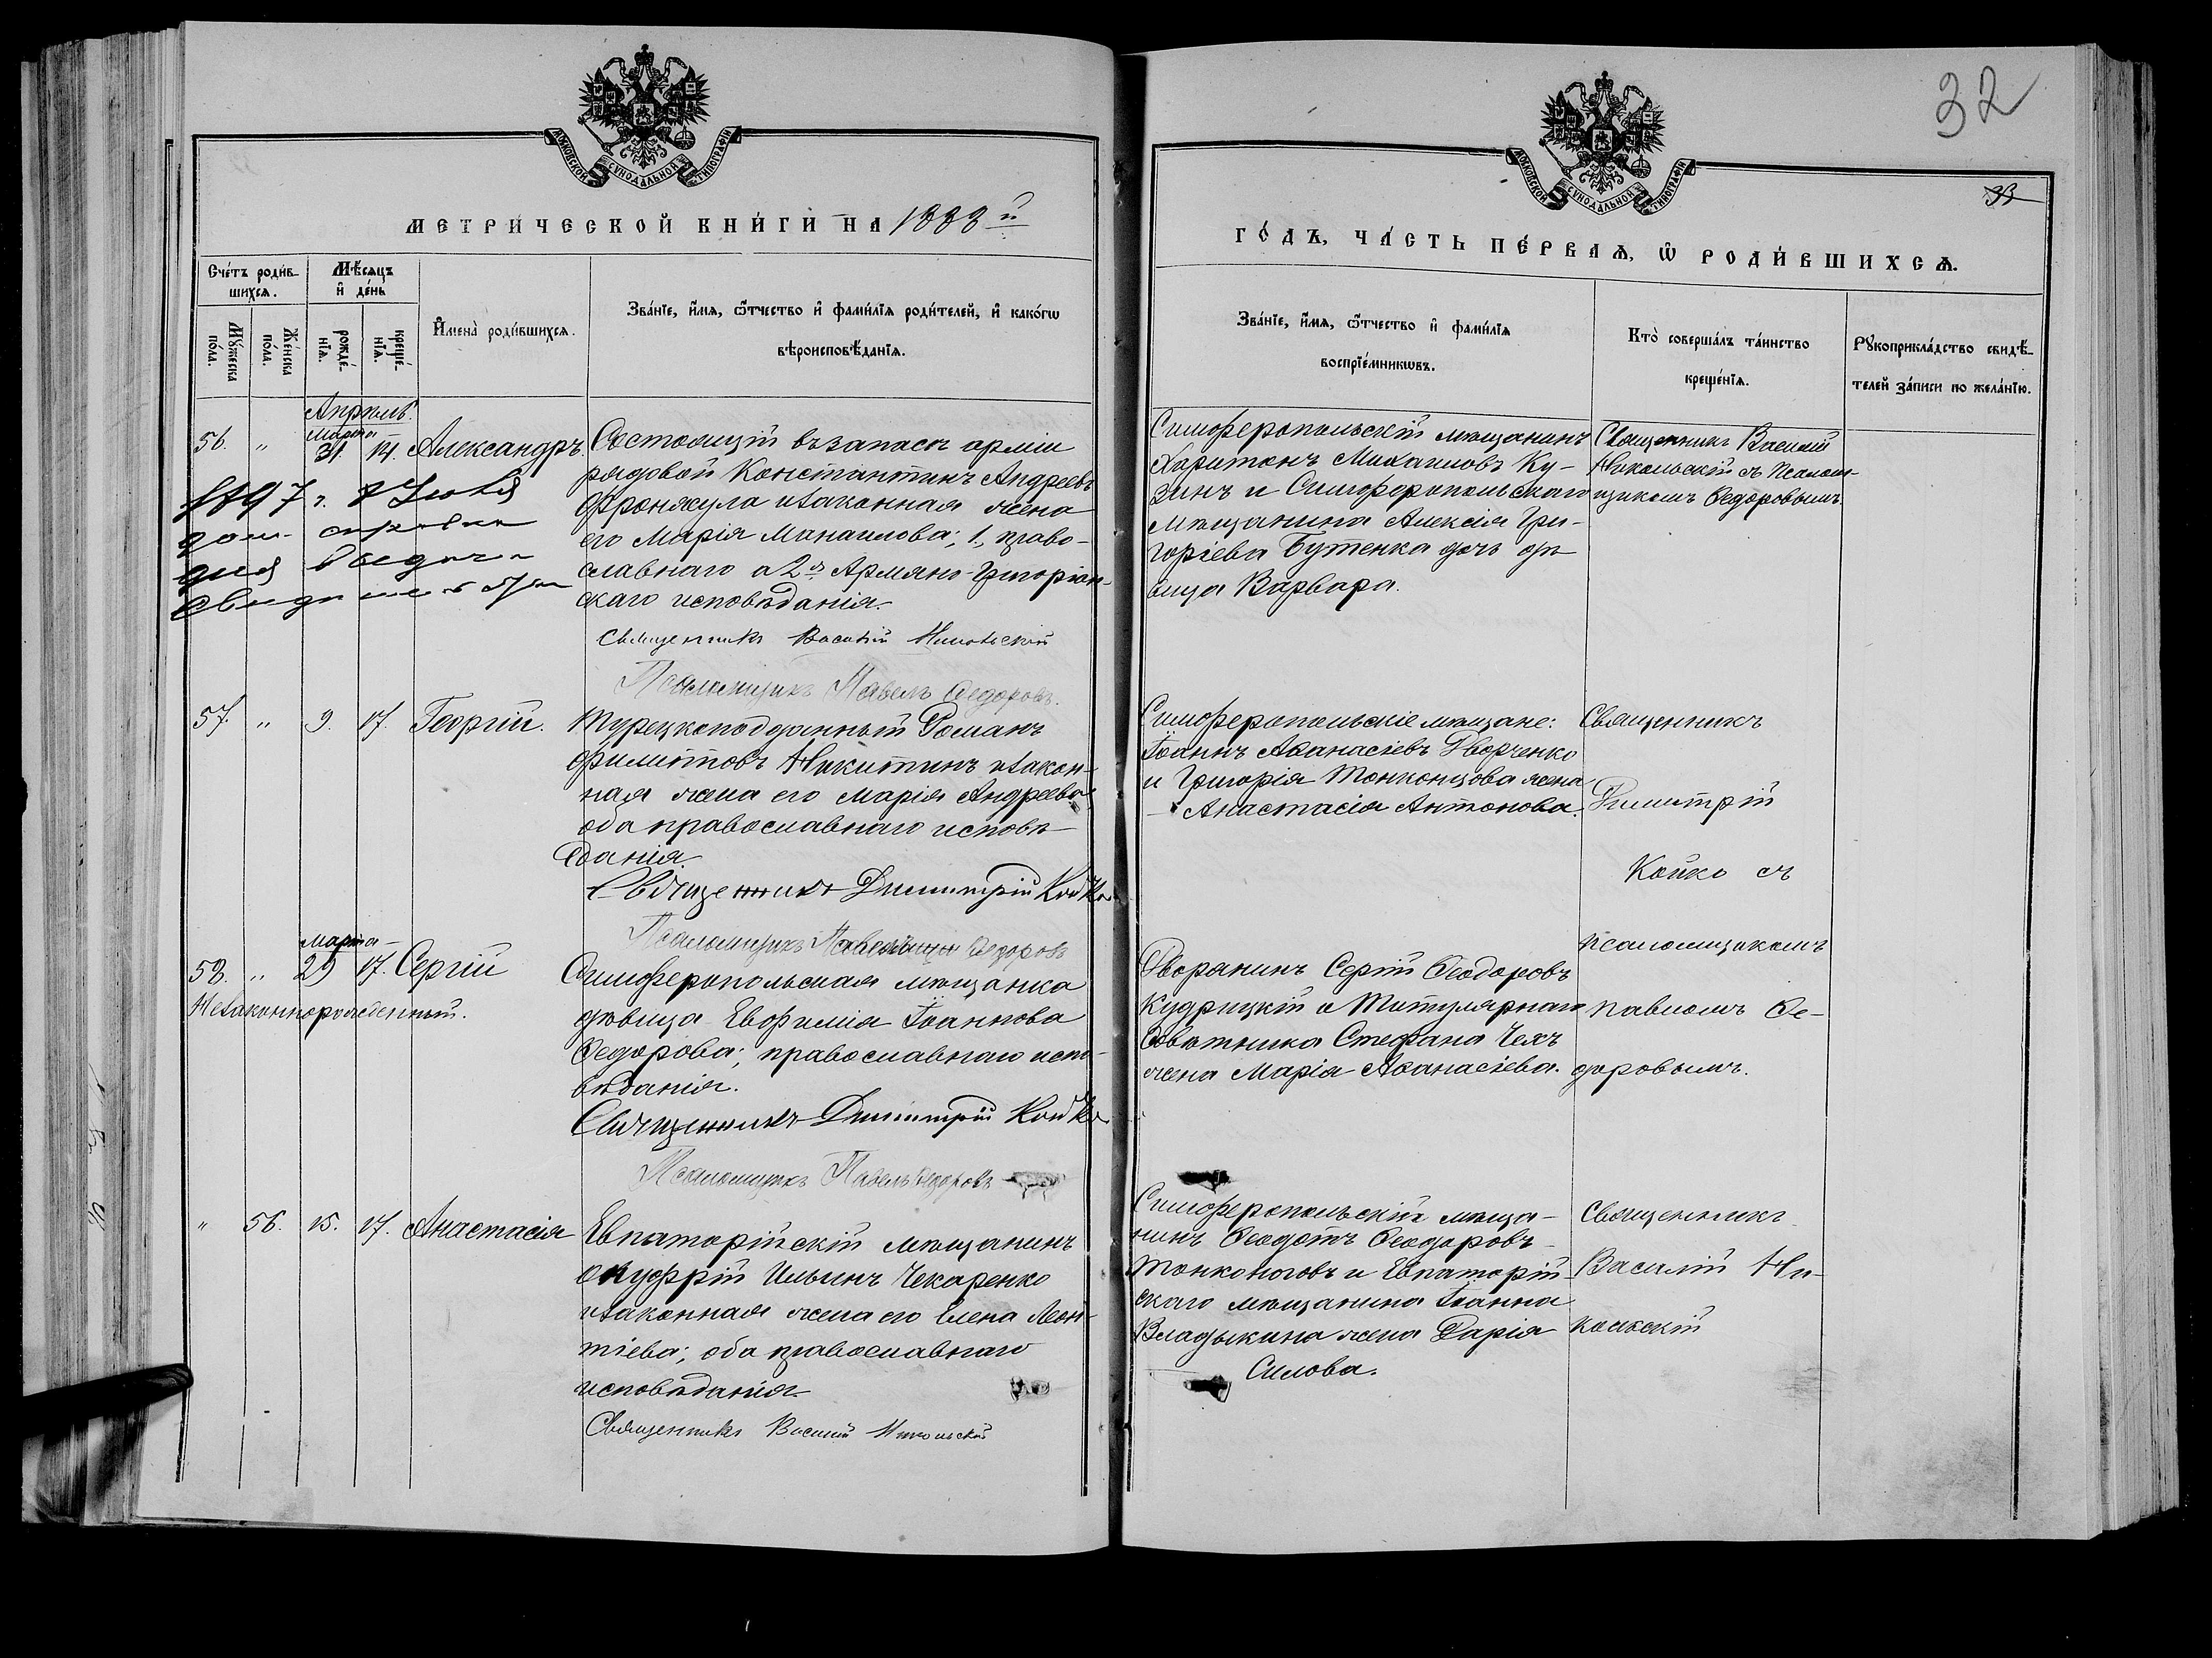 МОСКОВСКОЙ СѴНОДАЛЬНОЙ ТИПОГРАФІИ
МЕТРИ́ЧЕСКОЙ КНИ́ГИ НА 1888й
Сче́тъ роди́вшихсѧ.
Мѣ́сѧцъ и҆ де́нь
Мꙋ́жеска по́ла.
Же́нска по́ла.
рожде́нїѧ.
креще́нїѧ.
И҆мена̀ роди́вшихсѧ.
Зва́нїе, и҆́мѧ, ѻ҆́тчество и҆ фами́лїѧ роди́телей, и҆ како́гѡ
вѣроисповѣ́данїѧ.
Апрѣль.
56. " Марта 31. 14. Александръ.
1897 г. 8 Іюля
справка
для выдачи
Состоящій въ запасѣ арміи
рядовой Константинъ Андреевъ
Фронжула и законная жена
его Марія Манаилова; 1, православнаго
а 2я Армяно-Григоріанскаго
исповѣданія.
Священникъ Василій Никольскій
Псаломщикъ Павелъ Федоровъ.
57. " 9. 17. Георгій.
Турецкоподданный Романъ
Филиттовъ Никитинъ и законная
жена его Марія Андреева
оба православнаго исповѣданія.
Священникъ Димитрій Койко
Псаломщикъ Федоровъ
58. " Марта 29 17. Сергій
Незаконнорожденный.
Симферопольская мѣщанка
дѣвица Евфимія Іоаннова
Федорова; православнаго исповѣданія.
Священникъ Димитрій Койко
Псаломщикъ Павелъ Федоровъ
" 56. 15. 17. Анастасія
Евпаторійскій мѣщанинъ
Онуфрій Ильинъ Чекаренко
и законная жена его Елена Леонтіева;
оба православнаго
исповѣданія.
Священникъ Василій Никольскій
32
МОСКОВСКОЙ СѴНОДАЛЬНОЙ ТИПОГРАФІИ
ГО́ДЪ, ЧА́СТЬ ПЕ́РВАѦ, Ѡ҆ РОДИ́ВШИХСѦ.
Зва́нїе, и҆́мѧ, ѻ҆́тчество и҆ фами́лїѧ
воспрїе́мникѡвъ.
Кто̀ соверша́лъ та́инство
креще́нїѧ.
Рꙋкоприкла́дство свидѣ́телей
за́писи по жела́нїю.
Симферопольскій мѣщанинъ
Харитонъ Михаиловъ Кузинъ
и Симферопольскаго
мѣщанина Алексія Григоріева
Бутенка дочь дѣвица
Варвара.
Священникъ Василій
Никольскій съ псаломщикомъ
Федоровымъ.
Симферопольскіе мѣщане:
Іоаннъ Аѳанасіевъ Дворченко
и Григорія Тонконцова жена
Анастасія Антонова.
Священникъ
Димитрій
Койко съ
псаломщикомъ
Павломъ Федоровымъ.
Дворянинъ Сергій Ѳеодоровъ
Кудрицкій и Титулярнаго
Совѣтника Стефана Чехъ
жена Марія Аѳанасіева.
Симферопольскій мѣщанинъ
Ѳеодотъ Ѳеодоровъ
Тонконоговъ и Евпаторійскаго
мѣщанина Іоанна
Владыкина жена Дарія
Силова.
Священникъ
Василій Никольскій